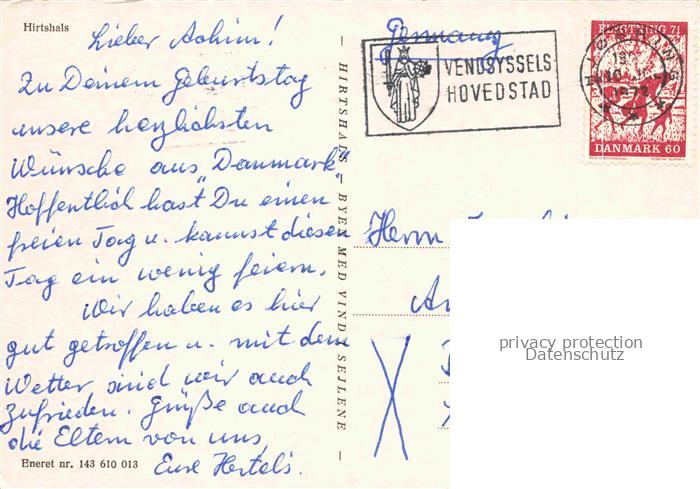 Hirtshals
Lieber Achim!
Zu Deinem Geburtstag
unsere herzlichsten
Wünsche aus „Danmark“.
Hoffentlich hast Du einen
freien Tag u. kannst diesen
Tag ein wenig feiern.
Wir haben es hier
gut getroffen u. mit dem
Wetter sind wir auch
zufrieden. Grüße auch
die Eltern von uns,
Eure Hertel's.
Eneret nr. 143 610 013
— HIRTSHALS — BYEN MED VIND I SEJLENE —
Germany
VENDSYSSELS
HOVEDSTAD
FLYGTNING 71
HJØRRING
1972
DANMARK 60
Herrn
privacy protection
Datenschutz